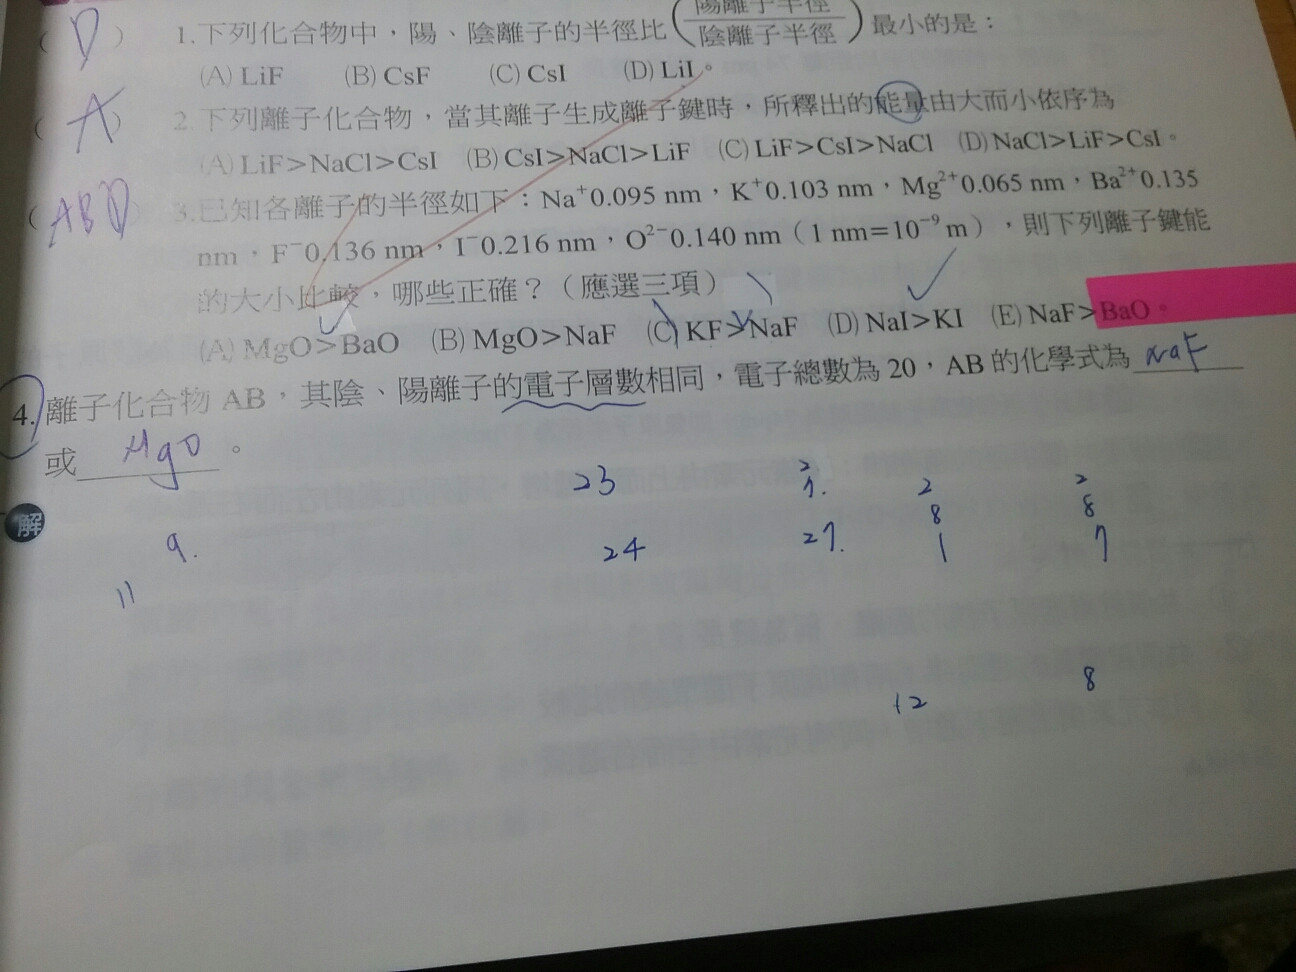 ( D ) 1.下列化合物中，陽、陰離子的半徑比(陽離子半徑/陰離子半徑)最小的是：
(A) LiF (B) CsF (C) CsI (D) LiI。
( A ) 2.下列離子化合物，當其離子生成離子鍵時，所釋出的能量由大而小依序為
(A) LiF>NaCl>CsI (B) CsI>NaCl>LiF (C) LiF>CsI>NaCl (D) NaCl>LiF>CsI。
( ABD ) 3.已知各離子的半徑如下：Na⁺0.095 nm，K⁺0.103 nm，Mg²⁺0.065 nm，Ba²⁺0.135
nm，F⁻0.136 nm，I⁻0.216 nm，O²⁻0.140 nm（1 nm=10⁻⁹ m），則下列離子鍵能
的大小比較，哪些正確？（應選三項）
(A) MgO>BaO (B) MgO>NaF (C) KF>NaF (D) NaI>KI (E) NaF>BaO。
4.離子化合物 AB，其陰、陽離子的電子層數相同，電子總數為 20，AB 的化學式為 NaF
或 MgO 。
解
23 2 2 2
7. 8 8
9. 24 27. 1 7
11
12 8